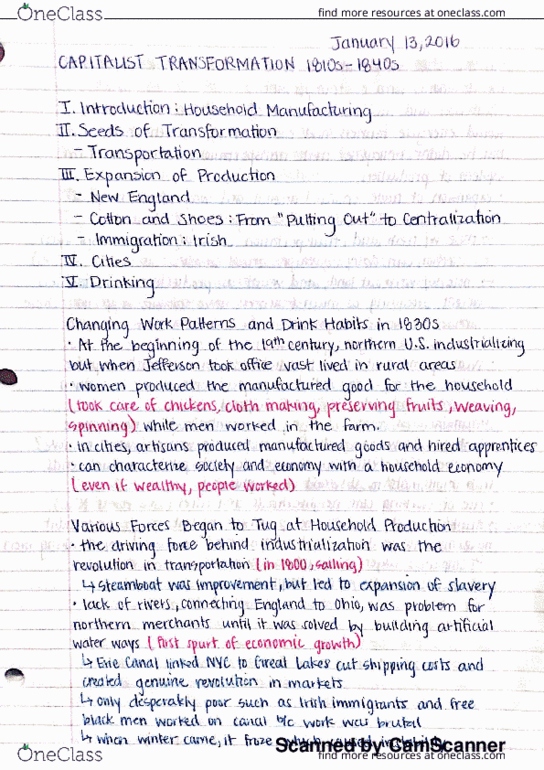 OneClass
find more resources at oneclass.com
January 13, 2016
CAPITALIST TRANSFORMATION 1810s-1840s
I. Introduction: Household Manufacturing
II. Seeds of Transformation
- Transportation
III. Expansion of Production
- New England
- Cotton and Shoes: From "Putting Out" to Centralization
- Immigration: Irish
IV. Cities
V. Drinking
Changing Work Patterns and Drink Habits in 1830s
• At the beginning of the 19th century, northern U.S. industrializing
but when Jefferson took office vast lived in rural areas
• women produced the manufactured good for the household
(took care of chickens, cloth making, preserving fruits, weaving,
spinning) while men worked in the farm.
• in cities, artisans produced manufactured goods and hired apprentices
• can characterize society and economy with a household economy
(even if wealthy, people worked)
Various Forces Began to Tug at Household Production
• the driving force behind industrialization was the
revolution in transportation (in 1800, sailing)
↳ steamboat was improvement, but led to expansion of slavery
• lack of rivers, connecting England to Ohio, was problem for
northern merchants until it was solved by building artificial
water ways (first spurt of economic growth)
↳ Erie Canal linked NYC to Great Lakes cut shipping costs and
created genuine revolution in markets
↳ only desperately poor such as Irish immigrants and free
black men worked on canal b/c work was brutal
↳ when winter came, it froze
Scanned by CamScanner
OneClass
find more resources at oneclass.com